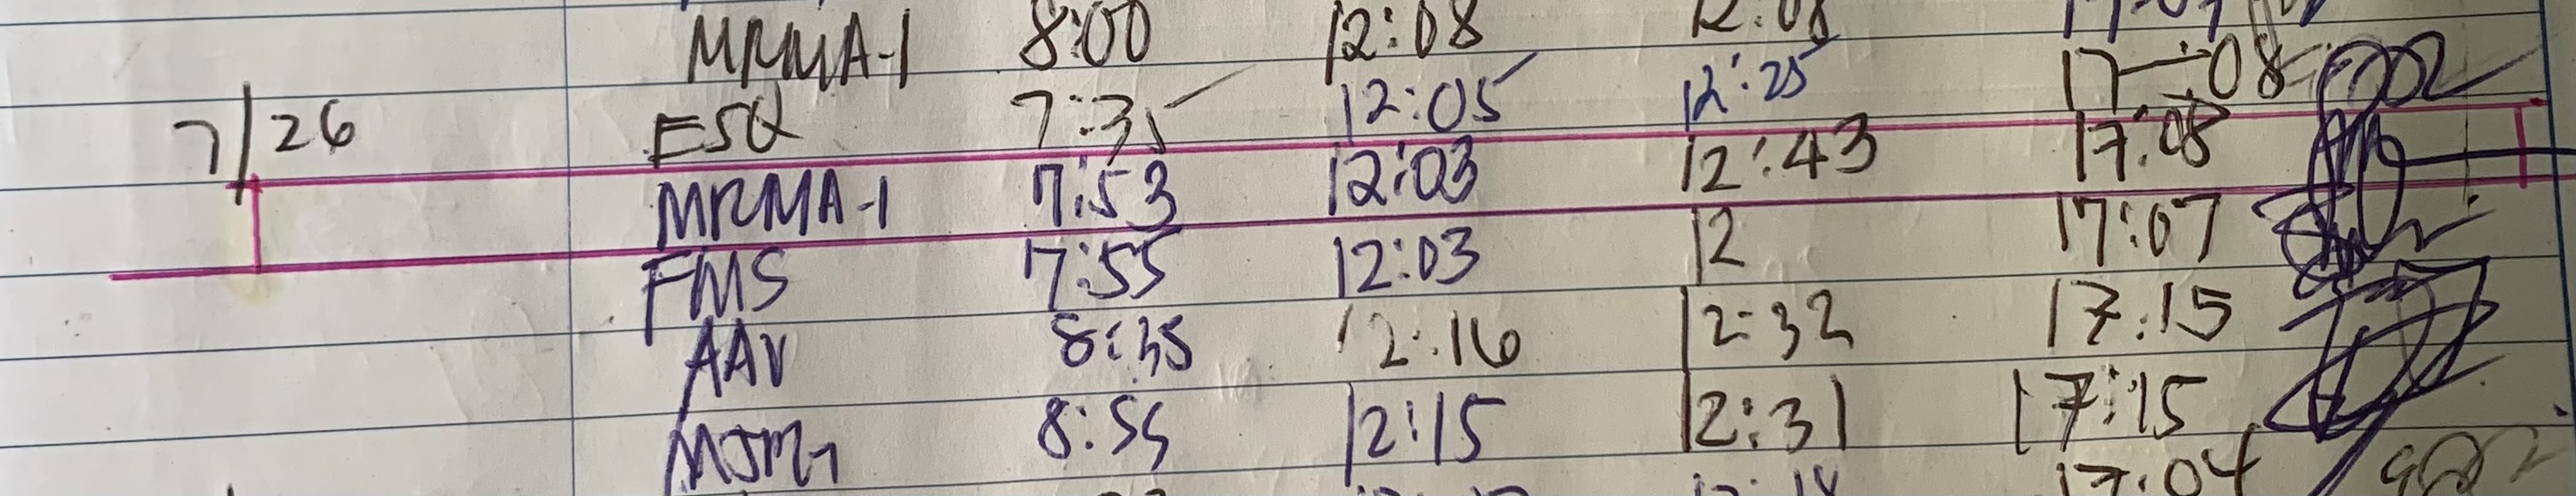 MRMA-1 8:00 12:08 12:08
7/26 ESQ 7:35 12:05 12:25 17:08
MRMA-1 7:53 12:03 12:43 17:08
FMS 7:55 12:03 12 17:07
AAV 8:35 12:16 12:32 17:15
8:55 12:15 12:31 17:15
17:04